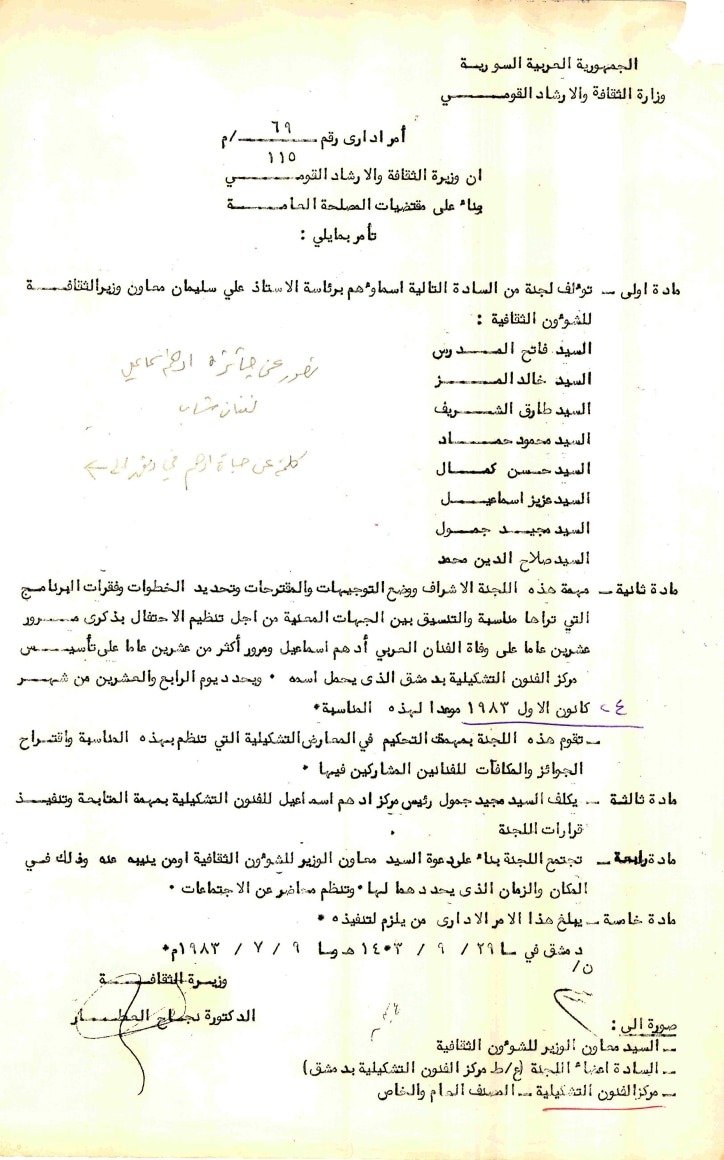 الجمهورية العربية السورية
وزارة الثقافة والارشاد القومي
أمر اداري رقم ٦٩ /م
١١٥
ان وزيرة الثقافة والارشاد القومي
بناء على مقتضيات المصلحة العامة
تأمر بمايلي :
مادة اولى ـ تؤلف لجنة من السادة التالية اسماؤهم برئاسة الاستاذ علي سليمان معاون وزير الثقافة
للشؤون الثقافية :
السيد فاتح المدرس
السيد خالد المز
السيد طارق الشريف
السيد محمود حماد
السيد حسن كمال
السيد عزيز اسماعيل
السيد مجيد جمول
السيد صلاح الدين محمد
تصور عن جائزة ادهم اسماعيل
لفنان شاب
كلمة عن حياة ادهم في
مادة ثانية ـ مهمة هذه اللجنة الاشراف ووضع التوجيهات والمقترحات وتحديد الخطوات وفقرات البرنامج
التي تراها مناسبة والتنسيق بين الجهات المعنية من اجل تنظيم الاحتفال بذكرى مرور
عشرين عاما على وفاة الفنان العربي أدهم اسماعيل ومرور أكثر من عشرين عاما على تأسيس
مركز الفنون التشكيلية بدمشق الذى يحمل اسمه ٠ ويحدد يوم الرابع والعشرين من شهر
٢٤ كانون الاول ١٩٨٣ موعدا لهذه المناسبة ٠
ـ تقوم هذه اللجنة بمهمة التحكيم في المعارض التشكيلية التي تنظم بهذه المناسبة واقتراح
الجوائز والمكافآت للفنانين المشاركين فيها ٠
مادة ثالثة ـ يكلف السيد مجيد جمول رئيس مركز ادهم اسماعيل للفنون التشكيلية بمهمة المتابعة وتنفيذ
قرارات اللجنة ٠
مادة رابعة ـ تجتمع اللجنة بناء على دعوة السيد معاون الوزير للشؤون الثقافية اومن ينيبه عنه وذلك في
المكان والزمان الذى يحددهما لها ٠ وتنظم محاضر عن الاجتماعات ٠
مادة خامسة ـ يبلغ هذا الامر الادارى من يلزم لتنفيذه ٠
دمشق في ٢٩ / ٩ / ١٤٠٣ هـ و ٩ / ٧ / ١٩٨٣م ٠
ن/
وزيرة الثقافة
الدكتورة نجاح العطار
صورة الى :
ـ السيد معاون الوزير للشؤون الثقافية
ـ السادة اعضاء اللجنة (ع/ط مركز الفنون التشكيلية بدمشق)
ـ مركز الفنون التشكيلية ـ المصنف العام والخاص